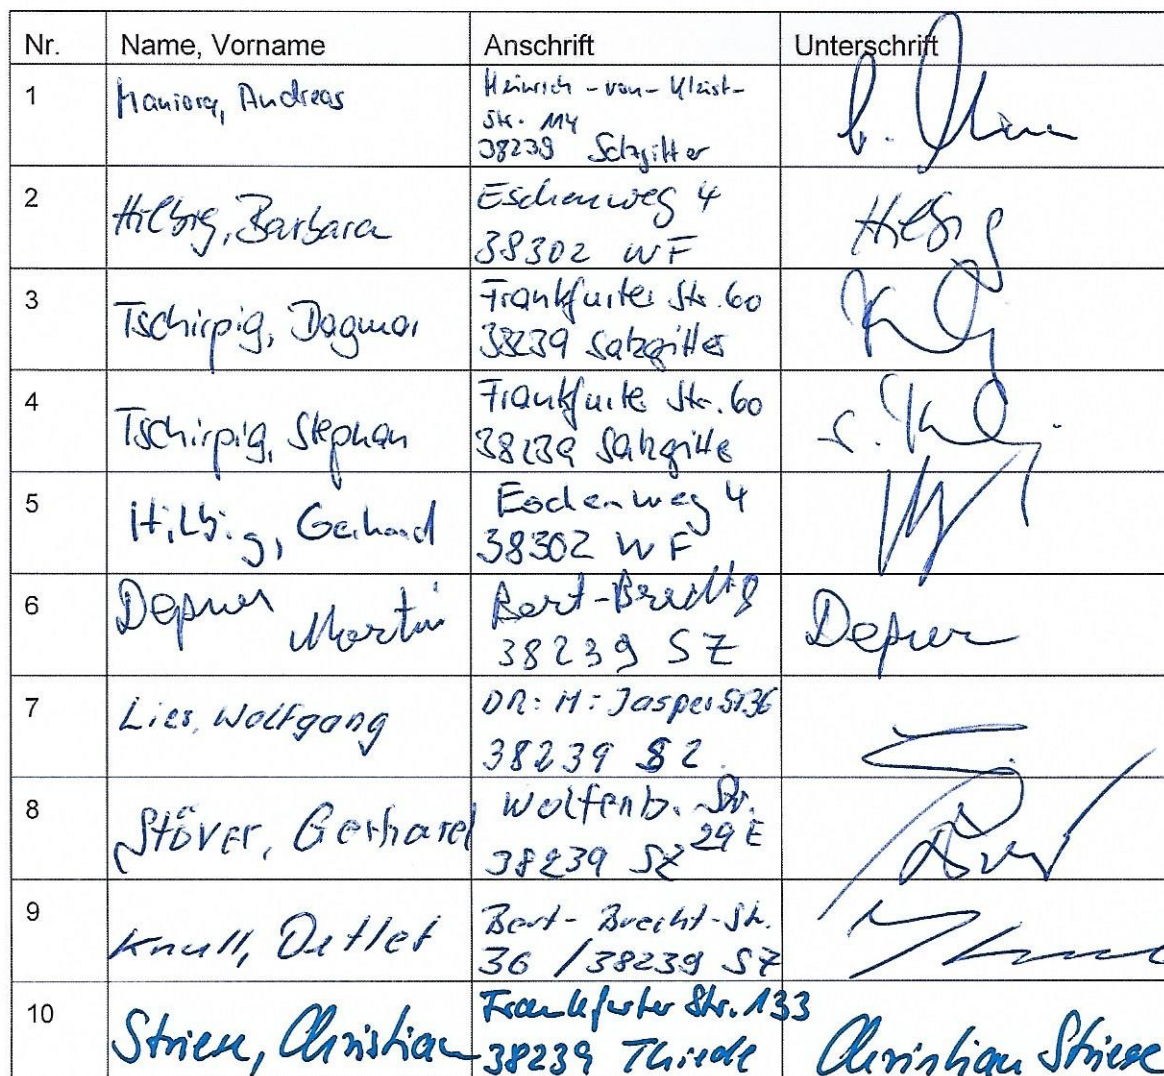 Nr. Name, Vorname Anschrift Unterschrift
1 Maniora, Andreas Heinrich-von-Kleist-
Str. 114
38239 Salzgitter
2 Hilbig, Barbara Eschenweg 4
38302 WF Hilbig
3 Tschirpig, Dagmar Frankfurter Str. 60
38239 Salzgitter
4 Tschirpig, Stephan Frankfurter Str. 60
38239 Salzgitter
5 Hilbig, Gerhard Eschenweg 4
38302 WF
6 Depner Martin Bert-Brecht 8
38239 SZ Depner
7 Lies, Wolfgang DR: H: Jasper Str 36
38239 SZ
8 Stöver, Gerhard Wolfenb. Str.
29 E
38239 SZ
9 Knull, Detlef Bert-Brecht-Str.
36 / 38239 SZ
10 Striese, Christian Frankfurter Str. 133
38239 Thiede Christian Striese